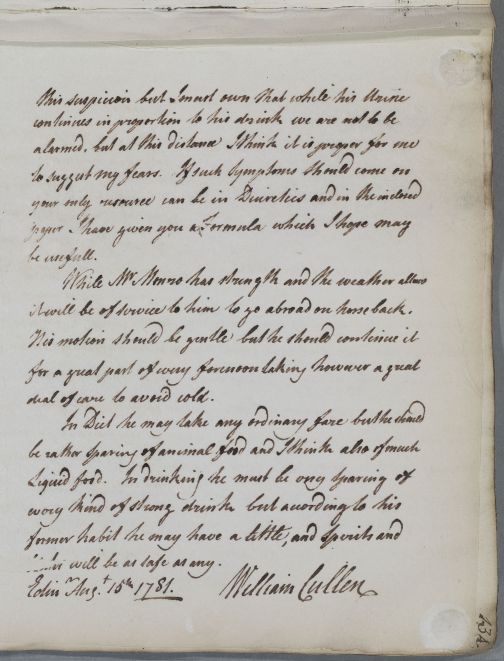 this suspicion but I must own that while his Urine
continues in proportion to his drink we are not to be
alarmed, but at this distance I think it is proper for me
to suggest my fears. If such Symptoms should come on
your only resource can be in Diuretics and in the inclosed
paper I have given you a Formula which I hope may
be usefull.
While Mr Monro has strength and the weather allows
it will be of service to him to go abroad on horseback.
His motion should be gentle but he should continue it
for a great part of every forenoon taking however a great
deal of care to avoid cold.
In Diet he may take any ordinary fare but he should
be rather sparing of animal food and I think also of much
Liquid food. In drinking he must be very sparing of
every kind of strong drink but according to his
former habit he may have a little, and spirits and
will be as safe as any.
Edinr Augt 15th 1781. William Cullen
434.